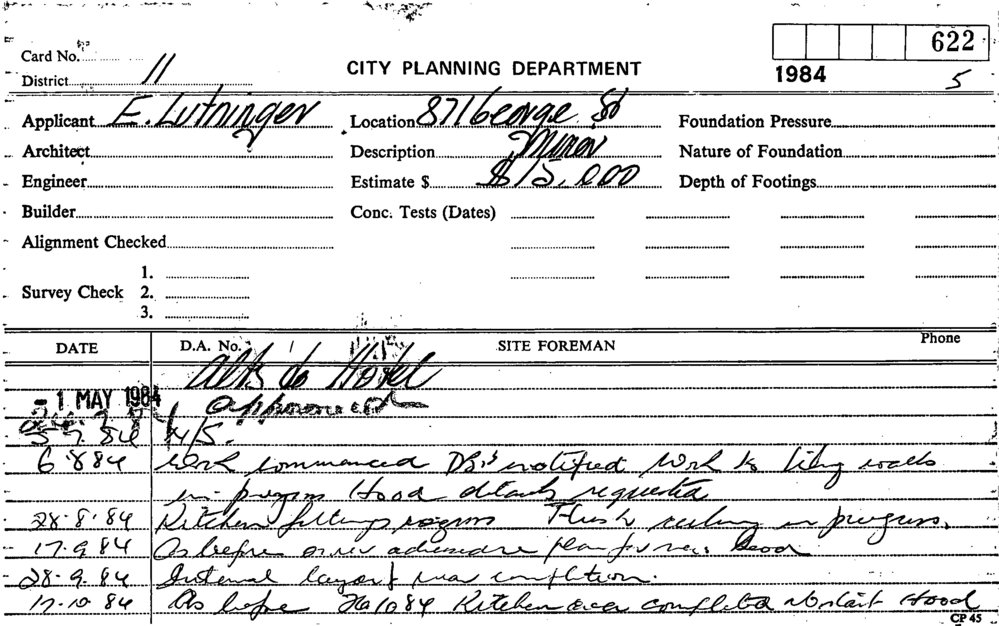 622
Card No.
CITY PLANNING DEPARTMENT
1984
5
District 11
Applicant E. Lutninger Location 871 George St Foundation Pressure
Architect Description Minor Nature of Foundation
Engineer Estimate $ $15,000 Depth of Footings
Builder Conc. Tests (Dates)
Alignment Checked
1.
Survey Check 2.
3.
DATE D.A. No. SITE FOREMAN Phone
Alts to Hotel
- 1 MAY 1984 Approved
5.7.84 N/S.
6.8.84 Work commenced notified Work to walls
in progress Hood details requested
28.8.84 Kitchen fittings Flush ceiling in progress.
17.9.84 As before plan for new hood
28.9.84 Internal layout near completion.
17.10.84 As before Kitchen area completed Hood
CP 45